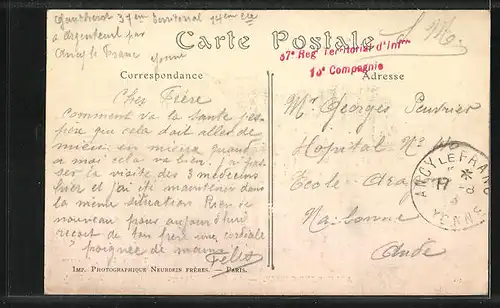 37em Territorial 14em Cie
à Argenteuil par
Ancy le Franc
Yonne
Carte Postale
S. M.
37e Rég Territorial d'Infrie
10e Compagnie
Correspondance
Adresse
Cher Frère
comment va la santé j'es-
père que cela doit aller de
mieux en mieux quand
a moi cela va bien. j'ai pas-
ser la visite des 3 médecins
hier et j'ai été maintenu dans
la même situation Rien de
nouveau pour aujourd'hui
reçoit de ton frère une cordiale
poignée de mains
Félix
Mr Georges
Hopital No 40
Ecole
Narbonne
Aude
ANCY LE FRANC
YONNE
IMP. PHOTOGRAPHIQUE NEURDEIN FRÈRES. — PARIS.